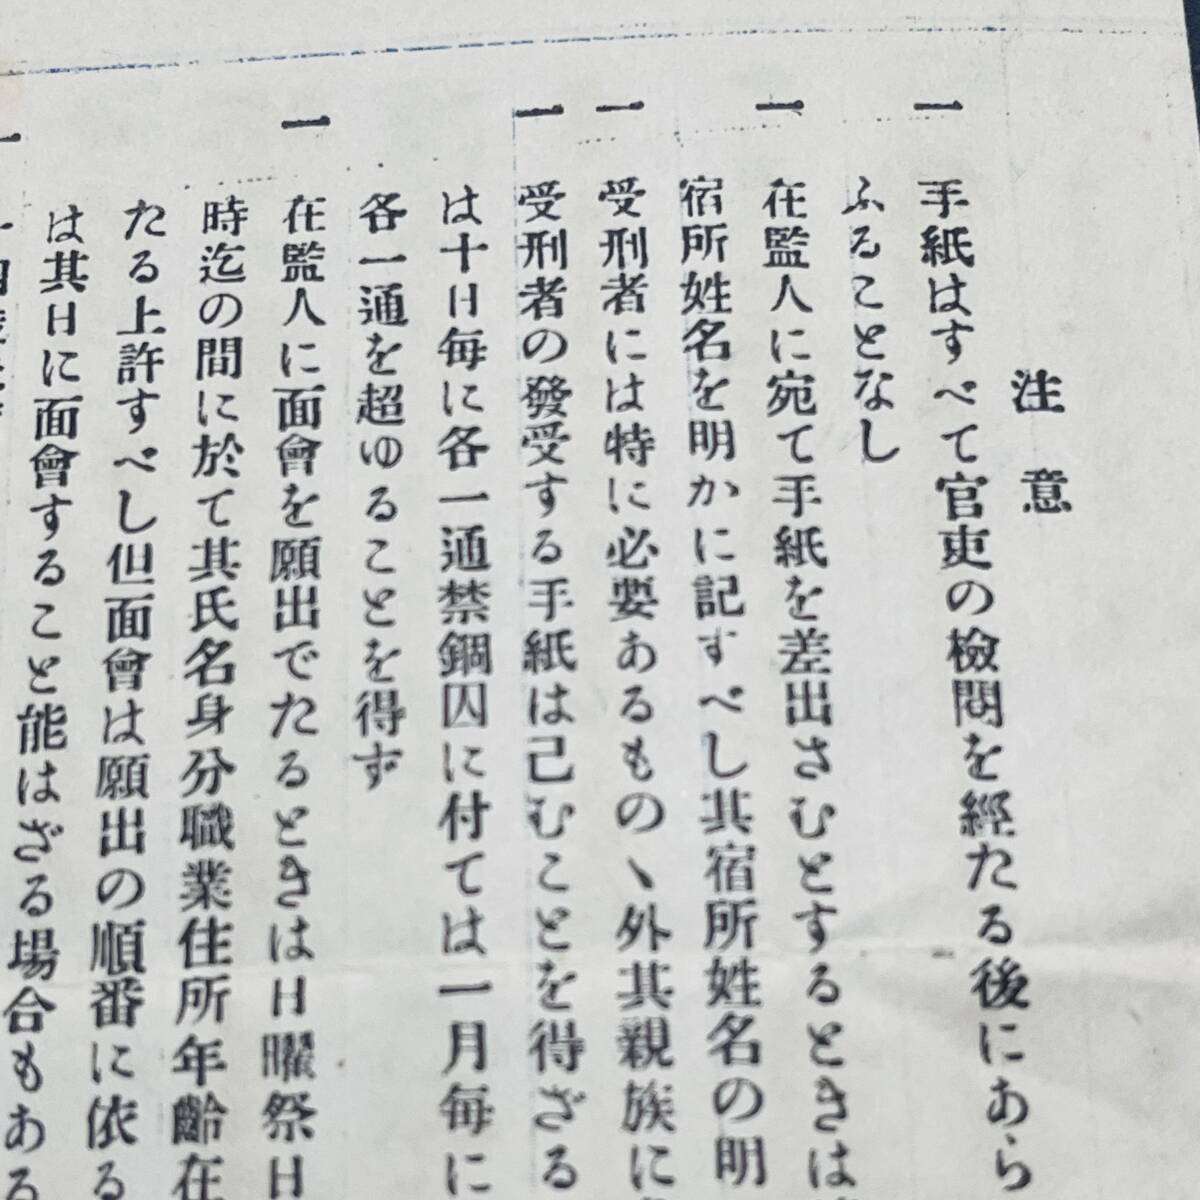 注意
一 手紙はすべて官吏の檢閲を經たる後にあら
ふることなし
一 在監人に宛て手紙を差出さむとするときは
宿所姓名を明かに記すべし其宿所姓名の明
一 受刑者には特に必要あるものヽ外其親族に
一 受刑者の發受する手紙は已むことを得ざる
は十日每に各一通禁錮囚に付ては一月每に
各一通を超ゆることを得ず
一 在監人に面會を願出でたるときは日曜祭日
時迄の間に於て其氏名身分職業住所年齡在
たる上許すべし但面會は願出の順番に依る
は其日に面會すること能はざる場合もある
一